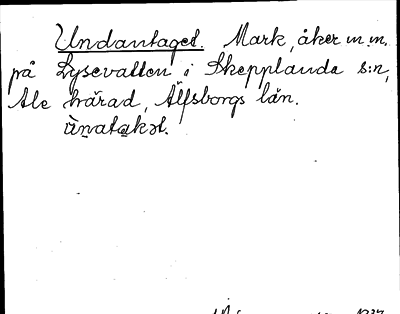 Undantaget. Mark, åker m.m.
på Lysevatten i Skepplanda s:n,
Ale härad, Älfsborgs län.
ùnatakət.